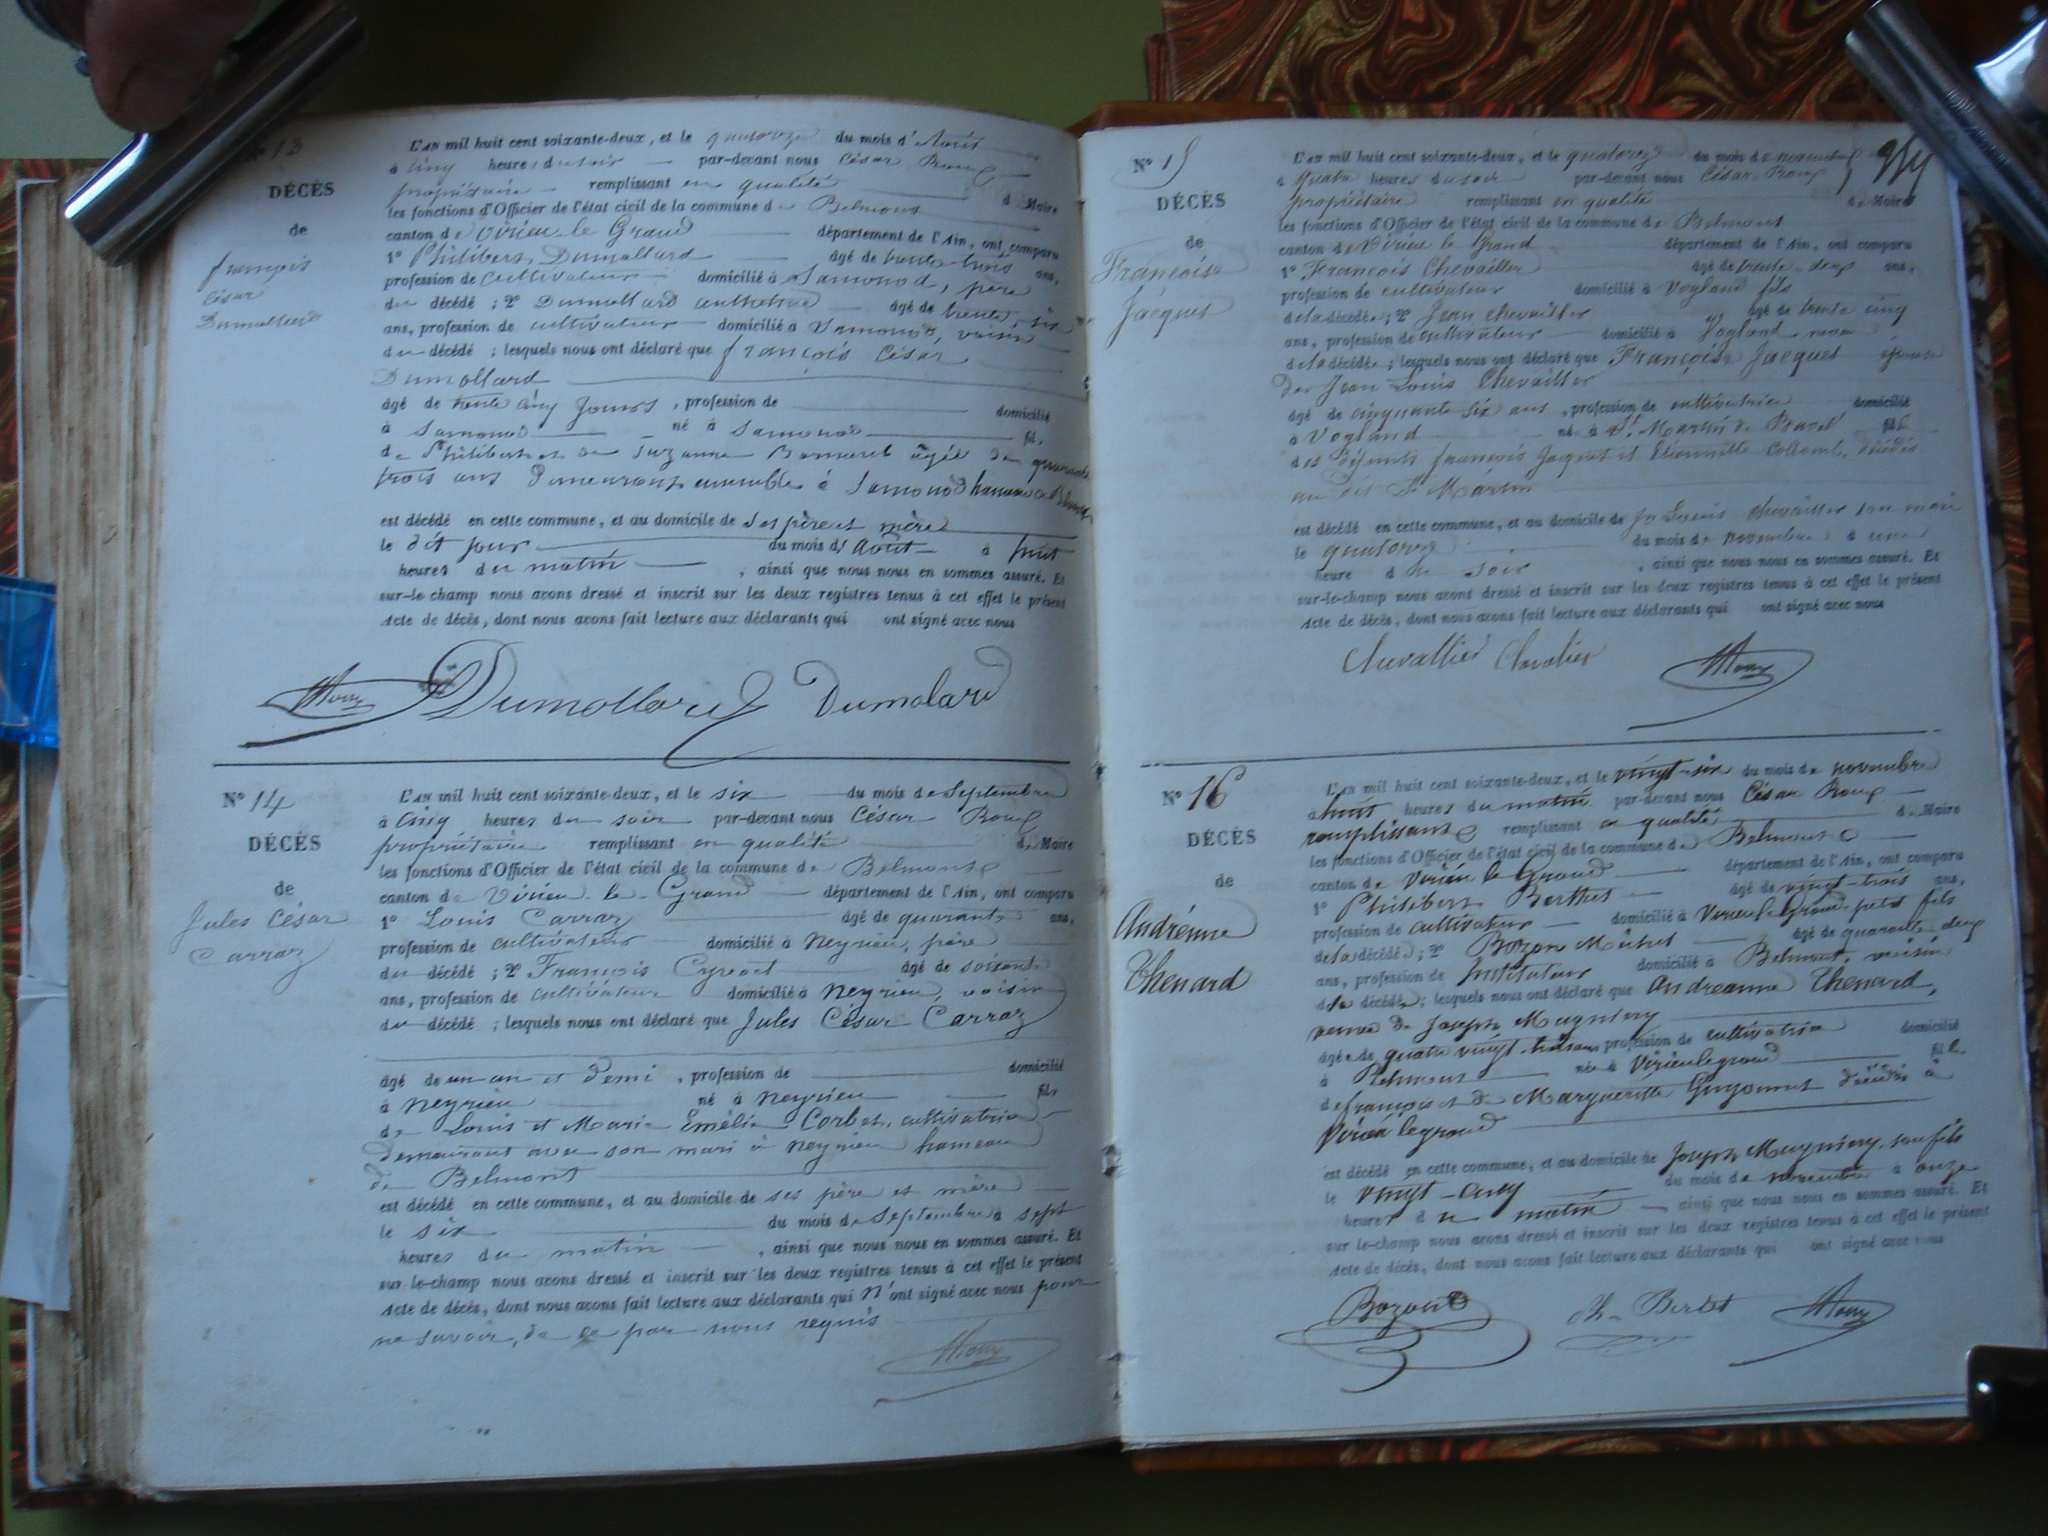 N° 13
DÉCÈS
de
françois
César
Dumollard
L'an mil huit cent soixante-deux, et le quatorze du mois d'Août
à cinq heures du soir par-devant nous César Roux
propriétaire remplissant en qualité de Maire
les fonctions d'Officier de l'état civil de la commune de Belmont
canton de Virieu le Grand département de l'Ain, ont comparu
1° Philibert Dumollard âgé de trente-trois ans,
profession de cultivateur domicilié à Samonod, père
du décédé ; 2° Dumollard anthelme âgé de trente six
ans, profession de cultivateur domicilié à Samonod, voisin
du décédé ; lesquels nous ont déclaré que françois César
Dumollard
âgé de trente cinq jours, profession de domicilié
à Samonod né à Samonod fils
de Philibert et de Suzanne âgée de quarante
trois ans demeurant ensemble à Samonod hameau de Belmont
est décédé en cette commune, et au domicile de ses père et mère
le dit jour du mois d'Août à huit
heures du matin, ainsi que nous nous en sommes assuré. Et
sur-le-champ nous avons dressé et inscrit sur les deux registres tenus à cet effet le présent
Acte de décès, dont nous avons fait lecture aux déclarants qui ont signé avec nous
Roux Dumollard Dumolard
N° 14
DÉCÈS
de
Jules César
Carraz
L'an mil huit cent soixante-deux, et le six du mois de Septembre
à cinq heures du soir par-devant nous César Roux
propriétaire remplissant en qualité de Maire
les fonctions d'Officier de l'état civil de la commune de Belmont
canton de Virieu-le-Grand département de l'Ain, ont comparu
1° Louis Carraz âgé de quarante ans,
profession de cultivateur domicilié à Neyrieu, père
du décédé ; 2° François Cyvoct âgé de soixante
ans, profession de cultivateur domicilié à Neyrieu, voisin
du décédé ; lesquels nous ont déclaré que Jules César Carraz
âgé de un an et demi, profession de domicilié
à Neyrieu né à Neyrieu fils
de Louis et Marie Emélie Corbet, cultivatrice
demeurant avec son mari à Neyrieu hameau
de Belmont
est décédé en cette commune, et au domicile de ses père et mère
le six du mois de Septembre à sept
heures du matin, ainsi que nous nous en sommes assuré. Et
sur-le-champ nous avons dressé et inscrit sur les deux registres tenus à cet effet le présent
Acte de décès, dont nous avons fait lecture aux déclarants qui n'ont signé avec nous pour
ne savoir, de ce par nous requis
Roux
N° 15
DÉCÈS
de
Françoise
Jacquet
L'an mil huit cent soixante-deux, et le quatorze du mois de novembre
à quatre heures du soir par-devant nous César Roux
propriétaire remplissant en qualité de Maire
les fonctions d'Officier de l'état civil de la commune de Belmont
canton de Virieu le Grand département de l'Ain, ont comparu
1° François Chevailler âgé de trente-deux ans,
profession de cultivateur domicilié à Vogland fils
de la décédée ; 2° Jean chevailler âgé de trente cinq
ans, profession de cultivateur domicilié à Vogland
de la décédée ; lesquels nous ont déclaré que Françoise Jacquet épouse
de Jean Louis Chevailler
âgé de cinquante six ans, profession de cultivatrice domicilié
à Vogland née à St Martin de Bavel fille
des défunts françois Jacquet et Etiennette Collomb, décédés
au dit St Martin
est décédé en cette commune, et au domicile de Jn Louis chevailler son mari
le quatorze du mois de novembre à une
heure du soir, ainsi que nous nous en sommes assuré. Et
sur-le-champ nous avons dressé et inscrit sur les deux registres tenus à cet effet le présent
Acte de décès, dont nous avons fait lecture aux déclarants qui ont signé avec nous
Chevallier Chevalier Roux
N° 16
DÉCÈS
de
Andréanne
Thenard
L'an mil huit cent soixante-deux, et le vingt-six du mois de novembre
à huit heures du matin par-devant nous César Roux
remplissant remplissant en qualité de Maire
les fonctions d'Officier de l'état civil de la commune de Belmont
canton de Virieu le Grand département de l'Ain, ont comparu
1° Philibert Berthet âgé de vingt-trois ans,
profession de cultivateur domicilié à Virieu le Grand petit fils
de la décédée ; 2° Bozon Michel âgé de quarante deux
ans, profession de Instituteur domicilié à Belmont, voisin
de la décédée ; lesquels nous ont déclaré que Andréanne Thenard,
veuve de Joseph Mugniery
âgée de quatre vingt-trois ans, profession de cultivatrice domicilié
à Belmont née à Virieu le grand fille
de françois et de Marguerite Guyonnet décédés à
Virieu le grand
est décédé en cette commune, et au domicile de Joseph Mugniery, son fils
le vingt-cinq du mois de novembre à onze
heures du matin ainsi que nous nous en sommes assuré. Et
sur-le-champ nous avons dressé et inscrit sur les deux registres tenus à cet effet le présent
Acte de décès, dont nous avons fait lecture aux déclarants qui ont signé avec nous
Bozon Ph. Bertet Roux